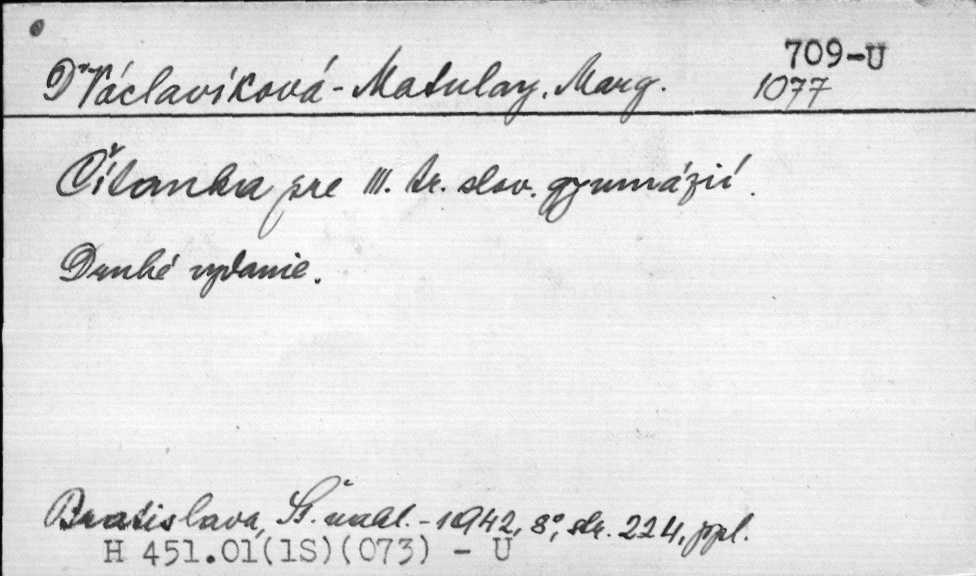 709-U
Dr Václavíková-Matulay, Marg. 1077
Čítanka pre III. tr. slov. gymnázií.
Druhé vydanie.
Bratislava, Št. nakl. - 1942, 8°, str. 224, ppl.
H 451.01(1S)(073) - U